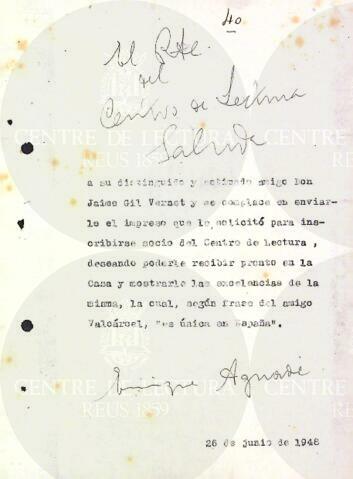 40
El Pte.
del
Centro de Lectura
Saluda
a su distinguido y estimado amigo Don
Jaime Gil Vernet y se complace en enviar-
le el impreso que le solicitó para ins-
cribirse socio del Centro de Lectura ,
deseando poderle recibir pronto en la
Casa y mostrarle las excelencias de la
misma, la cual, según frase del amigo
Valcárcel, "es única en España".
Enrique Aguadé
26 de junio de 1948
CENTRE DE LECTURA
REUS 1859
CENTRE DE LECTURA
REUS 1859